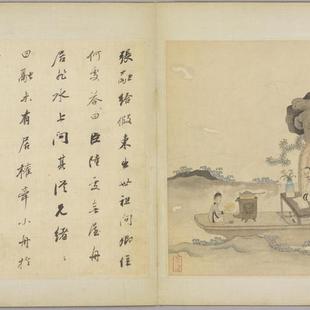 張融給假東出世祖問卿住
何處答曰臣陸處無屋舟
居非水上問其從兄緒〻
曰融未有居權牽小舟於